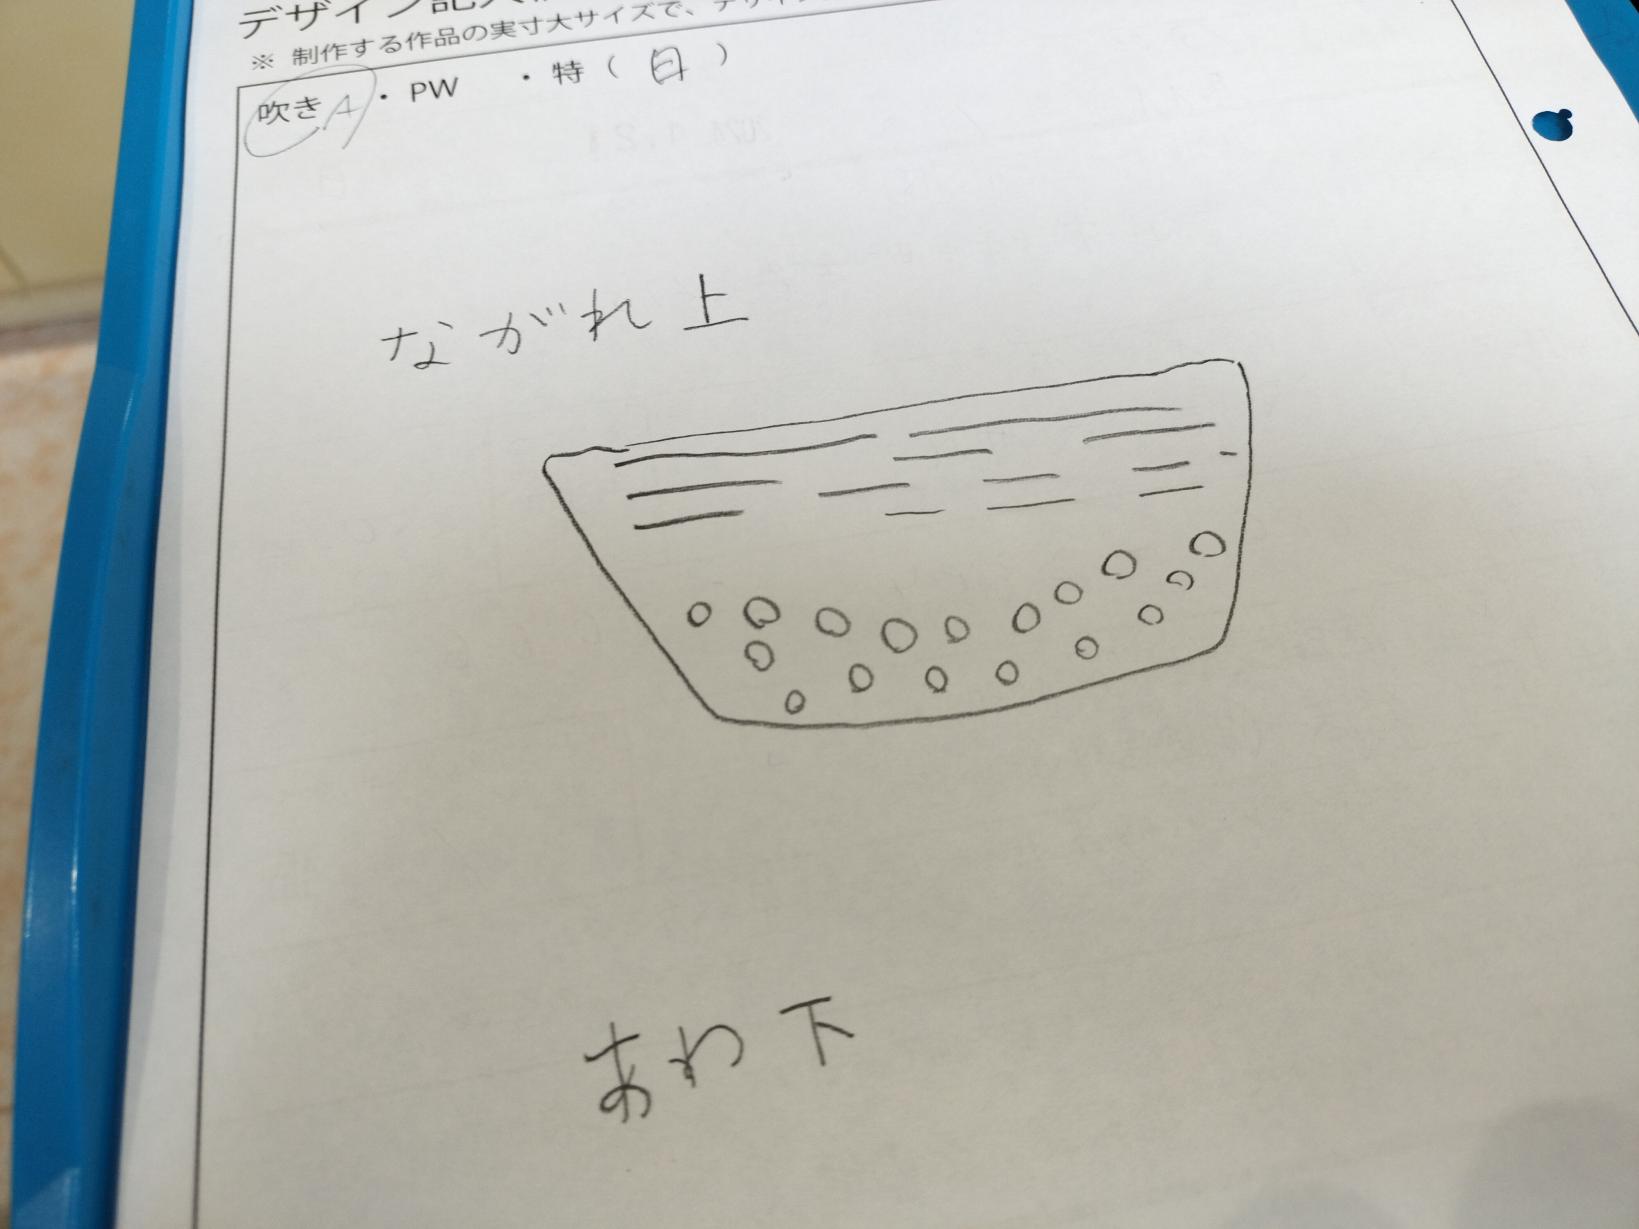 ※ 制作する作品の実寸大サイズで、デザイ
吹き A ・ PW ・ 特 ( 日 )
ながれ 上
あわ 下